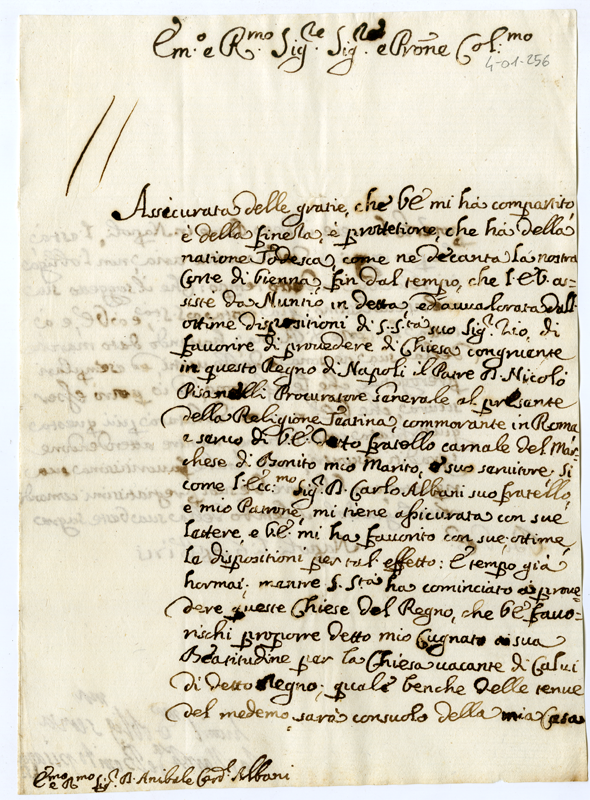 Em.o e R.mo Sig.re Sig.re e Prone Col.mo
4-01-256
Assicurata delle gratie, che V.E. mi hà compartito
e della finezza, e protettione, che hà della
natione Todesca, come ne decanta la nostra
Corte di Vienna, fin dal tempo, che l'E.V. as-
sistè da Nuntio in detta, ed avvalorata dall'
ottime dispositioni di S. S.tà suo Sig.r Zio, di
favorire di provedere di Chiesa congruente
in questo Regno di Napoli il Patre D. Nicolò
Pisanelli Procuratore Generale al presente
della Religione Teatina, commorante in Roma
e servo di V.E. detto fratello carnale del Mar-
chese di Bonito mio Marito, e suo servitore, si
come l'Ecc.mo Sig.r D. Carlo Albani suo fratello,
e mio Patrone, mi tiene assicurata con sue
lettere, e V.E. mi hà favorito con sue ottime
le dispositioni per tal effetto: È tempo già
hormai, mentre S. S.tà ha cominciato à prove-
dere queste Chiese del Regno, che V.E. favo-
rischi proporre detto mio Cugnato à sua
Beatitudine per la Chiesa vacante di Calvi
di detto Regno; quale benche delle tenue
del medemo, sarà consuolo della mia Casa
Em.o e R.mo Sig.r D. Anibale Card.l Albani